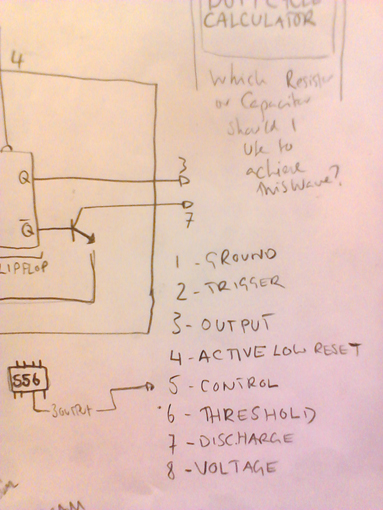 DUTY CYCLE
CALCULATOR
4
Which Resistor
or Capacitor
should I
use to
achieve
this wave?
Q
3
Q̅
7
LIPFLOP
1 - GROUND
2 - TRIGGER
3 - OUTPUT
4 - ACTIVE LOW RESET
5 - CONTROL
6 - THRESHOLD
7 - DISCHARGE
8 - VOLTAGE
556
3 OUTPUT